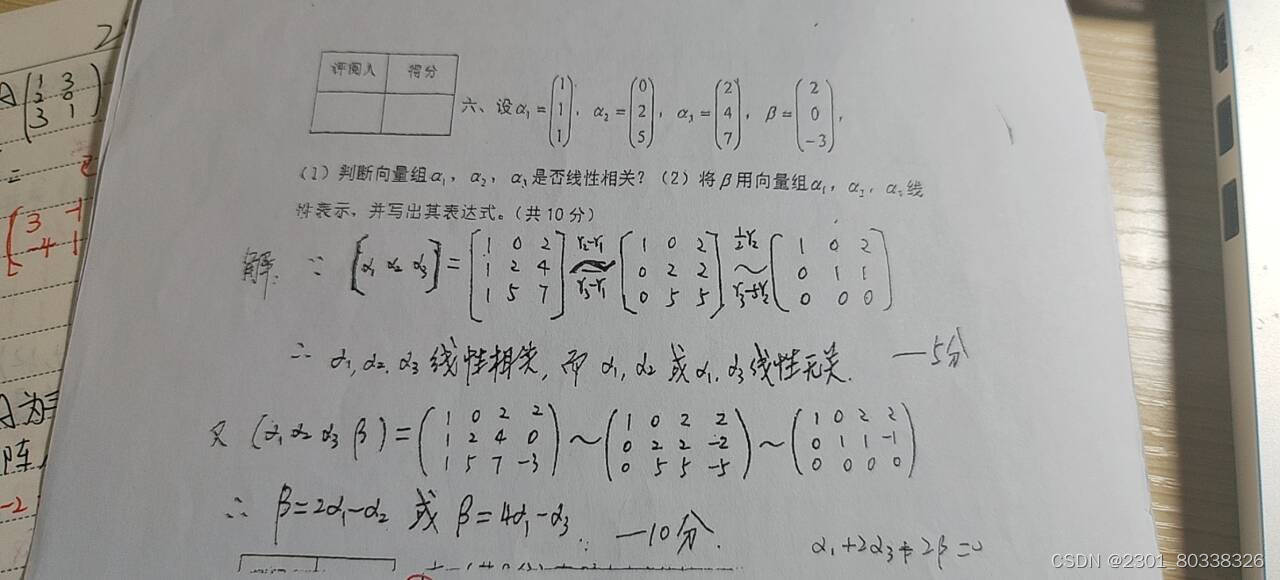 评阅人 得分
六、设α₁=(1 1 1), α₂=(0 2 5), α₃=(2 4 7), β=(2 0 -3),
(1)判断向量组α₁,α₂,α₃是否线性相关?(2)将β用向量组α₁,α₂,α₃线
性表示,并写出其表达式。(共10分)
解: ∵ [α₁ α₂ α₃] = [1 0 2; 1 2 4; 1 5 7] r₂-r₁ ~ r₃-r₁ [1 0 2; 0 2 2; 0 5 5] ½r₂ ~ r₃-5r₂ [1 0 2; 0 1 1; 0 0 0]
∴ α₁,α₂,α₃线性相关,而α₁,α₂或α₁,α₃线性无关. —5分
又 (α₁ α₂ α₃ β) = (1 0 2 2; 1 2 4 0; 1 5 7 -3) ~ (1 0 2 2; 0 2 2 -2; 0 5 5 -5) ~ (1 0 2 2; 0 1 1 -1; 0 0 0 0)
∴ β=2α₁-α₂ 或 β=4α₁-α₃. —10分.
A(1 3; 2 0; 3 1)
=
[3 -1; -4 1
A为
阵
-2
CSDN @2301_80338326